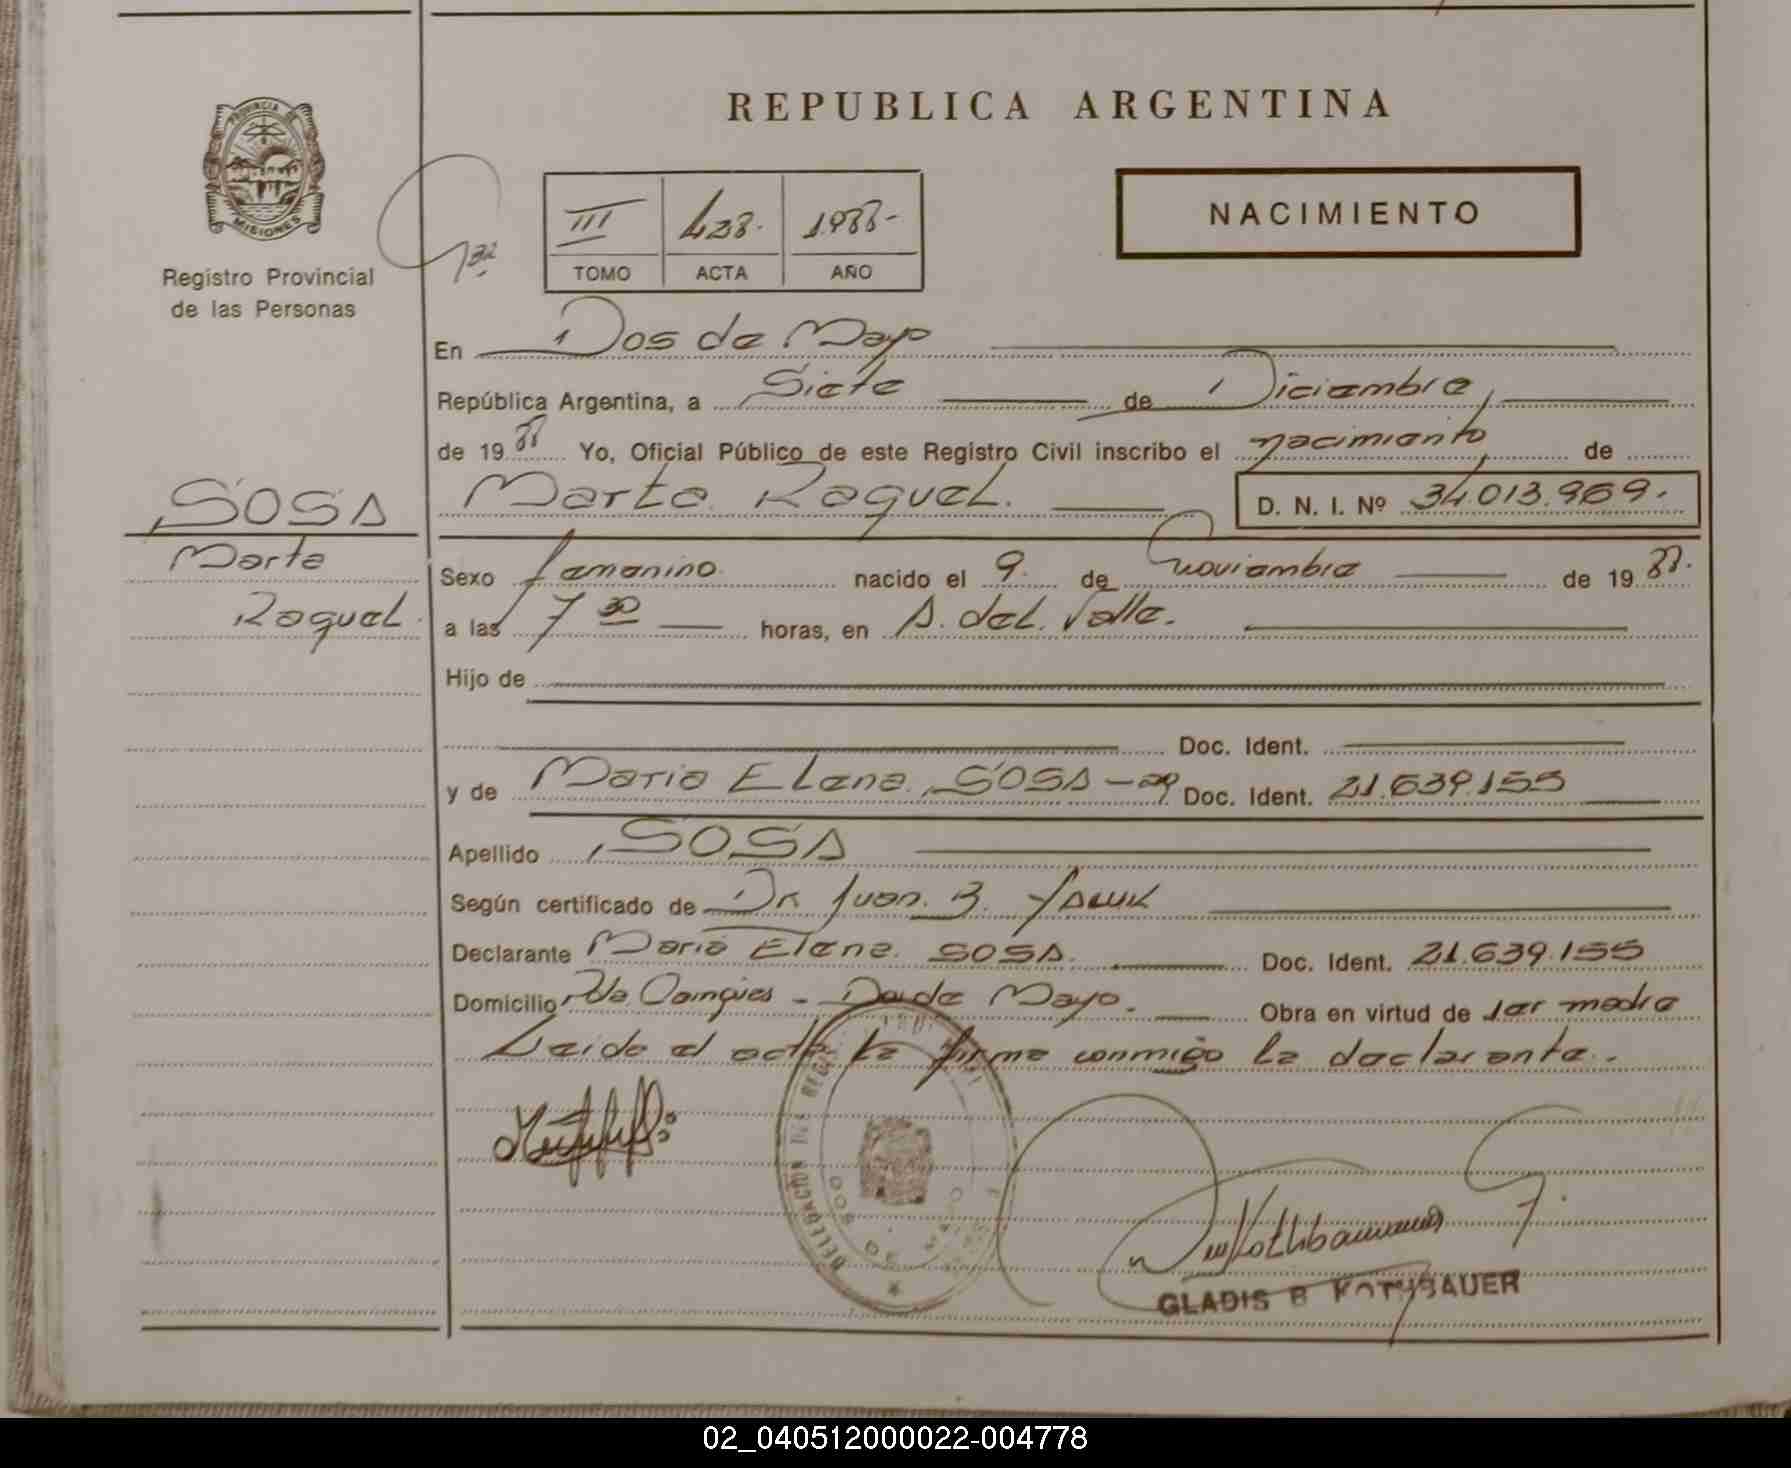 REPUBLICA ARGENTINA
PROVINCIA DE
MISIONES
Registro Provincial
de las Personas
III 428.- 1988-
TOMO ACTA AÑO
NACIMIENTO
En Dos de Mayo
República Argentina, a Siete de Diciembre,
de 19 88 Yo, Oficial Público de este Registro Civil inscribo el nacimiento de
Marta Raquel. D. N. I. Nº 34.013.969.
SOSA
Marta
Raquel.
Sexo femenino nacido el 9. de noviembre de 19 88.
a las 7 30 horas, en A. del Valle.
Hijo de
Doc. Ident.
y de Maria Elena SOSA - ag Doc. Ident. 21.639.155
Apellido SOSA
Según certificado de Dr Juan. B.
Declarante Maria Elena SOSA. Doc. Ident. 21.639.155
Domicilio Pda - Dos de Mayo. Obra en virtud de ser madre
Leida el acta la firma conmigo la declarante.
DELEGACION DEL REGIS
DOS DE MAYO
GLADIS B KOTHBAUER
02_040512000022-004778